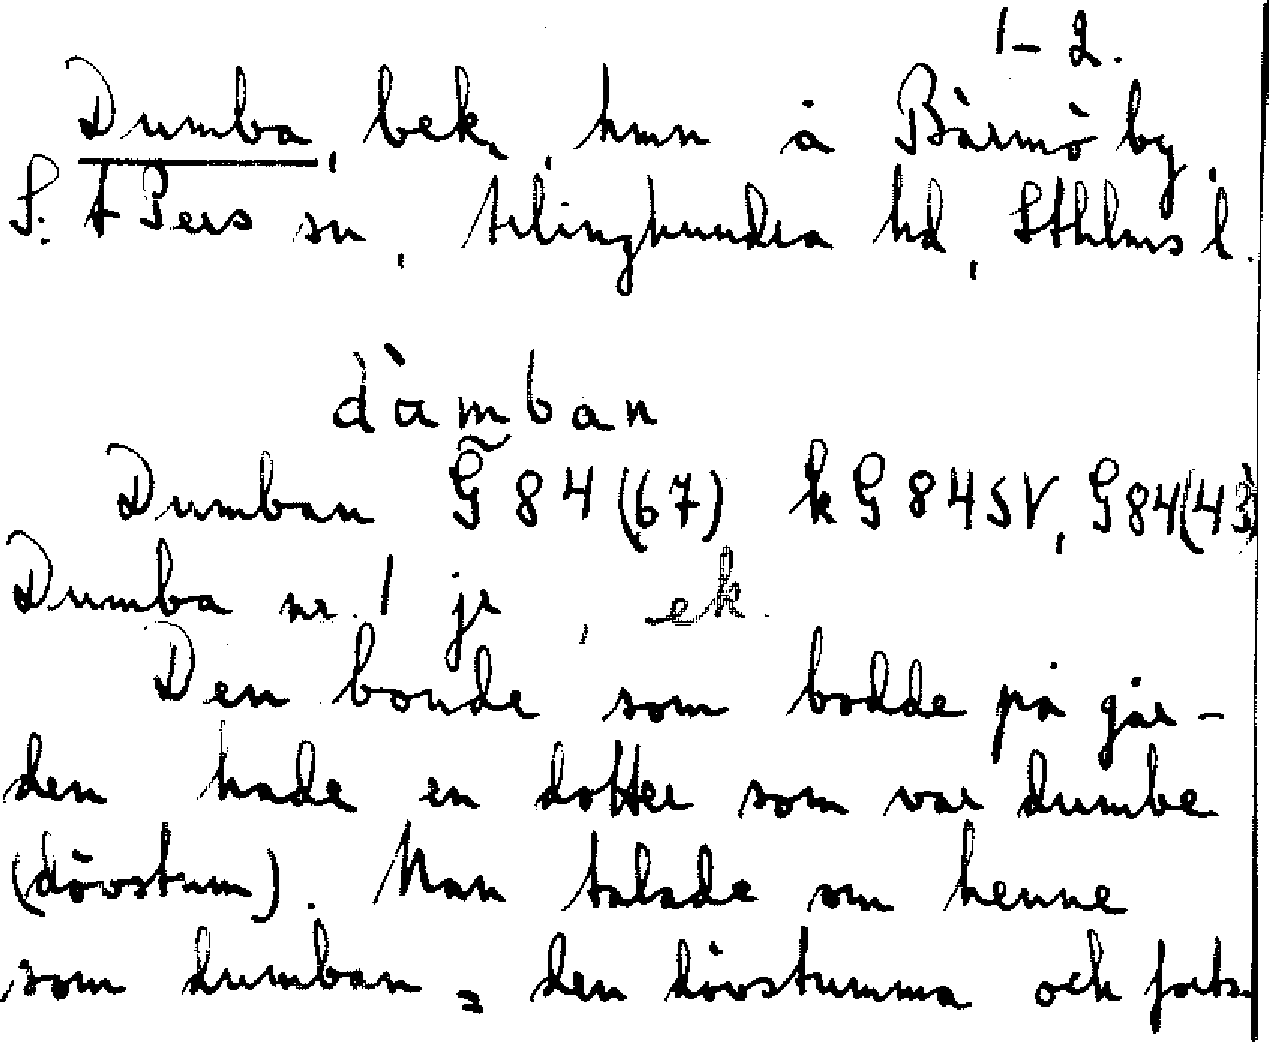 1-2.
Dumba, bek., hmn å Bärmö by,
S:t Pers sn, Ärlinghundra hd, Sthlms l.
dàmban
Dumban G 84 (67) k G 84 SV, G 84 (43)
Dumba nr. 1 jr, ek.
Den bonde som bodde på går-
den hade en dotter som var dumbe
(dövstum). Man talade om henne
som dumban = den dövstumma och forts.